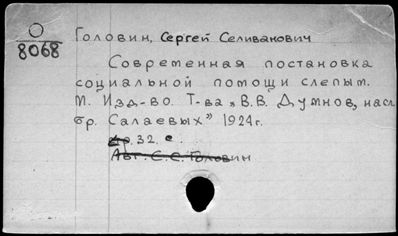 О
8068
Головин, Сергей Селиванович
Современная постановка
социальной помощи слепым.
М. Изд-во. Т-ва „В.В. Думнов, насл.
бр. Салаевых" 1924г.
32. с.
Авт. С.С. Головин